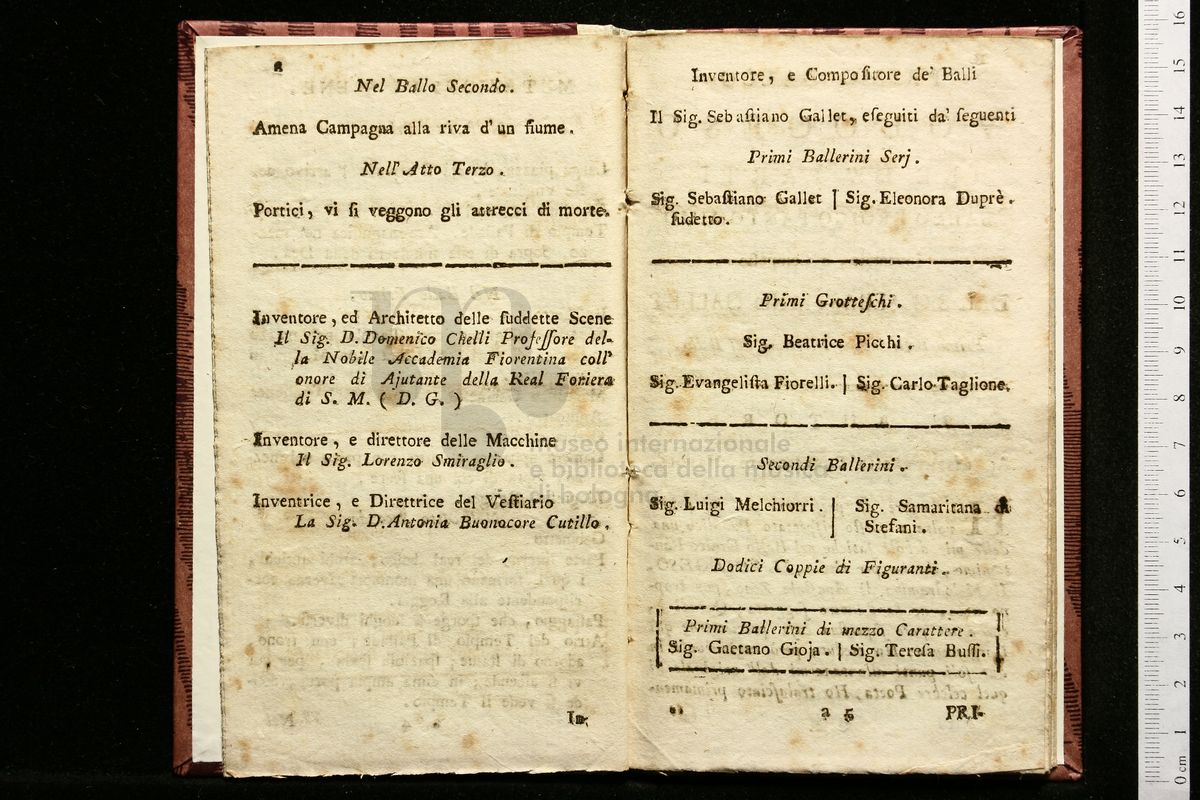 Nel Ballo Secondo.
Amena Campagna alla riva d'un fiume.
Nell'Atto Terzo.
Portici, vi ſi veggono gli attrecci di morte.
Inventore, ed Architetto delle ſuddette Scene
Il Sig. D. Domenico Chelli Profeſſore del-
la Nobile Accademia Fiorentina coll'
onore di Ajutante della Real Foriera
di S. M. ( D. G. )
Inventore, e direttore delle Macchine
Il Sig. Lorenzo Smiraglio.
Inventrice, e Direttrice del Veſtiario
La Sig. D. Antonia Buonocore Cutillo.
In-
Inventore, e Compoſitore de' Balli
Il Sig. Sebaſtiano Gallet, eſeguiti da' ſeguenti
Primi Ballerini Serj.
Sig. Sebaſtiano Gallet | Sig. Eleonora Duprè.
ſudetto.
Primi Grotteſchi.
Sig. Beatrice Picchi.
Sig. Evangeliſta Fiorelli. | Sig. Carlo Taglione.
Secondi Ballerini.
Sig. Luigi Melchiorri. | Sig. Samaritana di
Stefani.
Dodici Coppie di Figuranti.
Primi Ballerini di mezzo Carattere.
Sig. Gaetano Gioja. | Sig. Tereſa Buſſi.
a 5 PRI-
museo internazionale
e biblioteca della musica
di bologna
0 cm 1 2 3 4 5 6 7 8 9 10 11 12 13 14 15 16